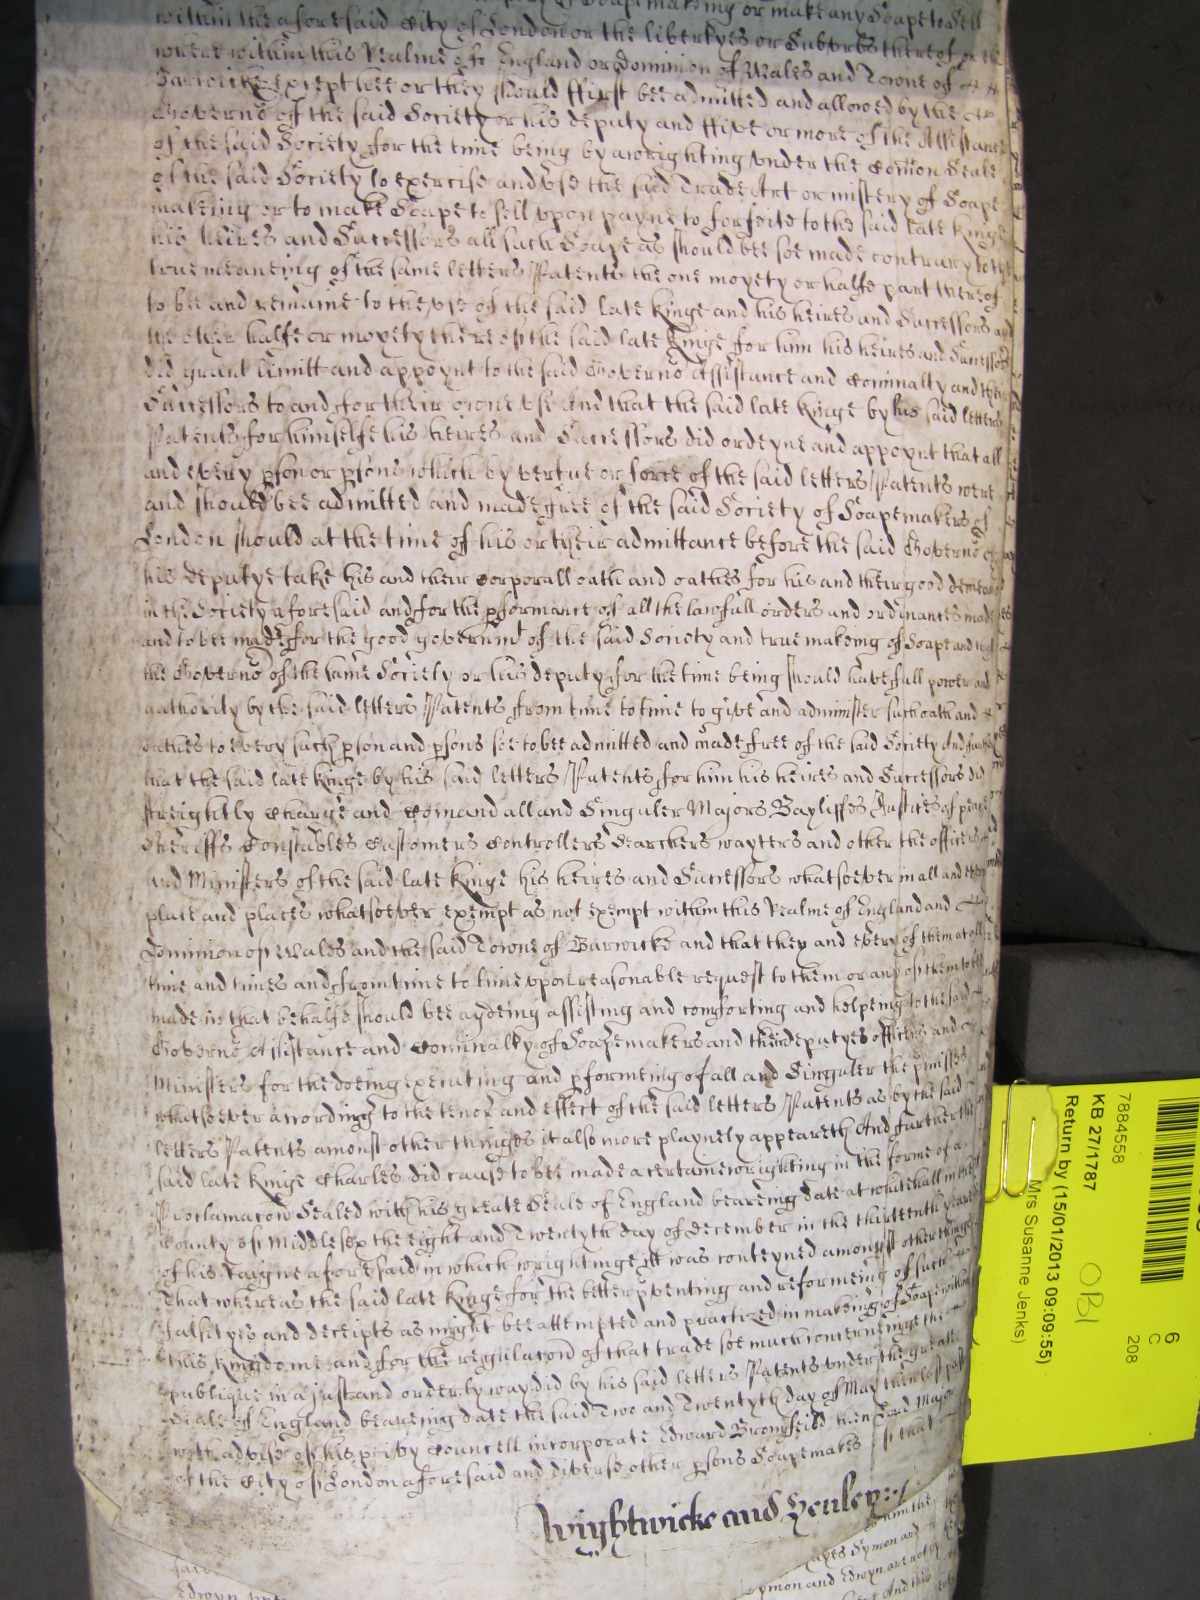 Soapemakeing or make any Soape to Sell
within the aforesaid City of London or the libertyes or Suburbs thereof or
where within this Realme of England or Dominion of Wales and Towne of
Barwicke except hee or they should ffirst bee admitted and allowed by the
Governo of the said Society or his deputy and ffive or more of the Assistance
of the said Society for the time being by a wrighting under the Comon Seale
of the said Society to exercise and use the said Trade Art or mistery of Soape
makeing or to make Soape to sell upon payne to forfeite to the said late Kinge
his heires and Successors all such Soape as should bee soe made contrary to the
true meaneing of the same letters Patents the one moyety or halfe part thereof
to bee and remaine to the use of the said late Kinge and his heires and Successors and
the other halfe or moyety thereof the said late Kinge for him his heires and Successors
did grant limitt and appoynt to the said Governo Assistance and Cominalty and their
Successors to and for their owne use And that the said late Kinge by his said letters
Patents for himselfe his heires and Successors did ordeyne and appoynt that all
and every pson or psons which by vertue or force of the said letters Patents were
and should bee admitted and made free of the said Society of Soapemakers of
London should at the time of his or their admittance before the said Governo or
his deputye take his and their Corporall oath and oathes for his and their good demeano
in the Society aforesaid and for the pformance of all the lawfull orders and ordinances made
and to bee made for the good governmt of the said Society and true makeing of Soape and
the Governo of the same Society or his deputy for the time being should have full power and
authority by the said letters Patents from time to time to give and administer such oath and
oathes to every such pson and psons soe to bee admitted and made free of the said Society And further
that the said late Kinge by his said letters Patents for him his heires and Successors did
streightly Charge and Comand all and Singuler Majors Bayliffes Justices of peace
Sheriffs Constables Customers Controllers Searchers wayters and other the officers
and Ministers of the said late Kinge his heires and Successors whatsoever in all and every
place and places whatsoever exempt as not exempt within this Realme of England and
Dominion of Wales and the said Towne of Barwicke and that they and every of them at all
time and times and from time to time upon reasonable request to them or any of them to bee
made in that behalfe should bee aydeing assisting and comforting and helpeing to the said
Governo Assistance and Cominalty of Soapemakers and their deputyes officers and
Ministers for the doeing executing and pformeing of all and Singuler the pmisses
whatsoever according to the tenor and effect of the said letters Patents as by the said
letters Patents amonst other thinges it also more playnely appeareth And further the
said late Kinge Charles did cause to bee made a certaine wrighting in the forme of a
Proclamacon Sealed with his greate Seale of England beareing date at whitehall in the
County of Middlesex the eight and Twentyth day of December in the thirteenth yeare
of his Raigne aforesaid in which wrightinge itt was conteyned amongst other thinges
That whereas the said late Kinge for the better pventing and reformeing of such
falsityes and deceipts as might bee attempted and practized in makeing of Soape within
this kingdome and for the regulacon of that trade soe much concerneinge the
publique in a just and orderly way did by his said letters Patents under the greate
Seale of England beareing date the said Two and Twentyth day of May then last past
with advise of his privy Councell incorporate Edward Bromfeild then Lord Major
of the City of London aforesaid and diverse other psons Soapemakers that
Wightwicke and Henley
said
Edwyn
Symon and
Symon and Edwyn are not
And this
6
C
208
7884558
KB 27/1787
OBJ
Return by (15/01/2013 09:09:55)
Mrs Susanne Jenks)